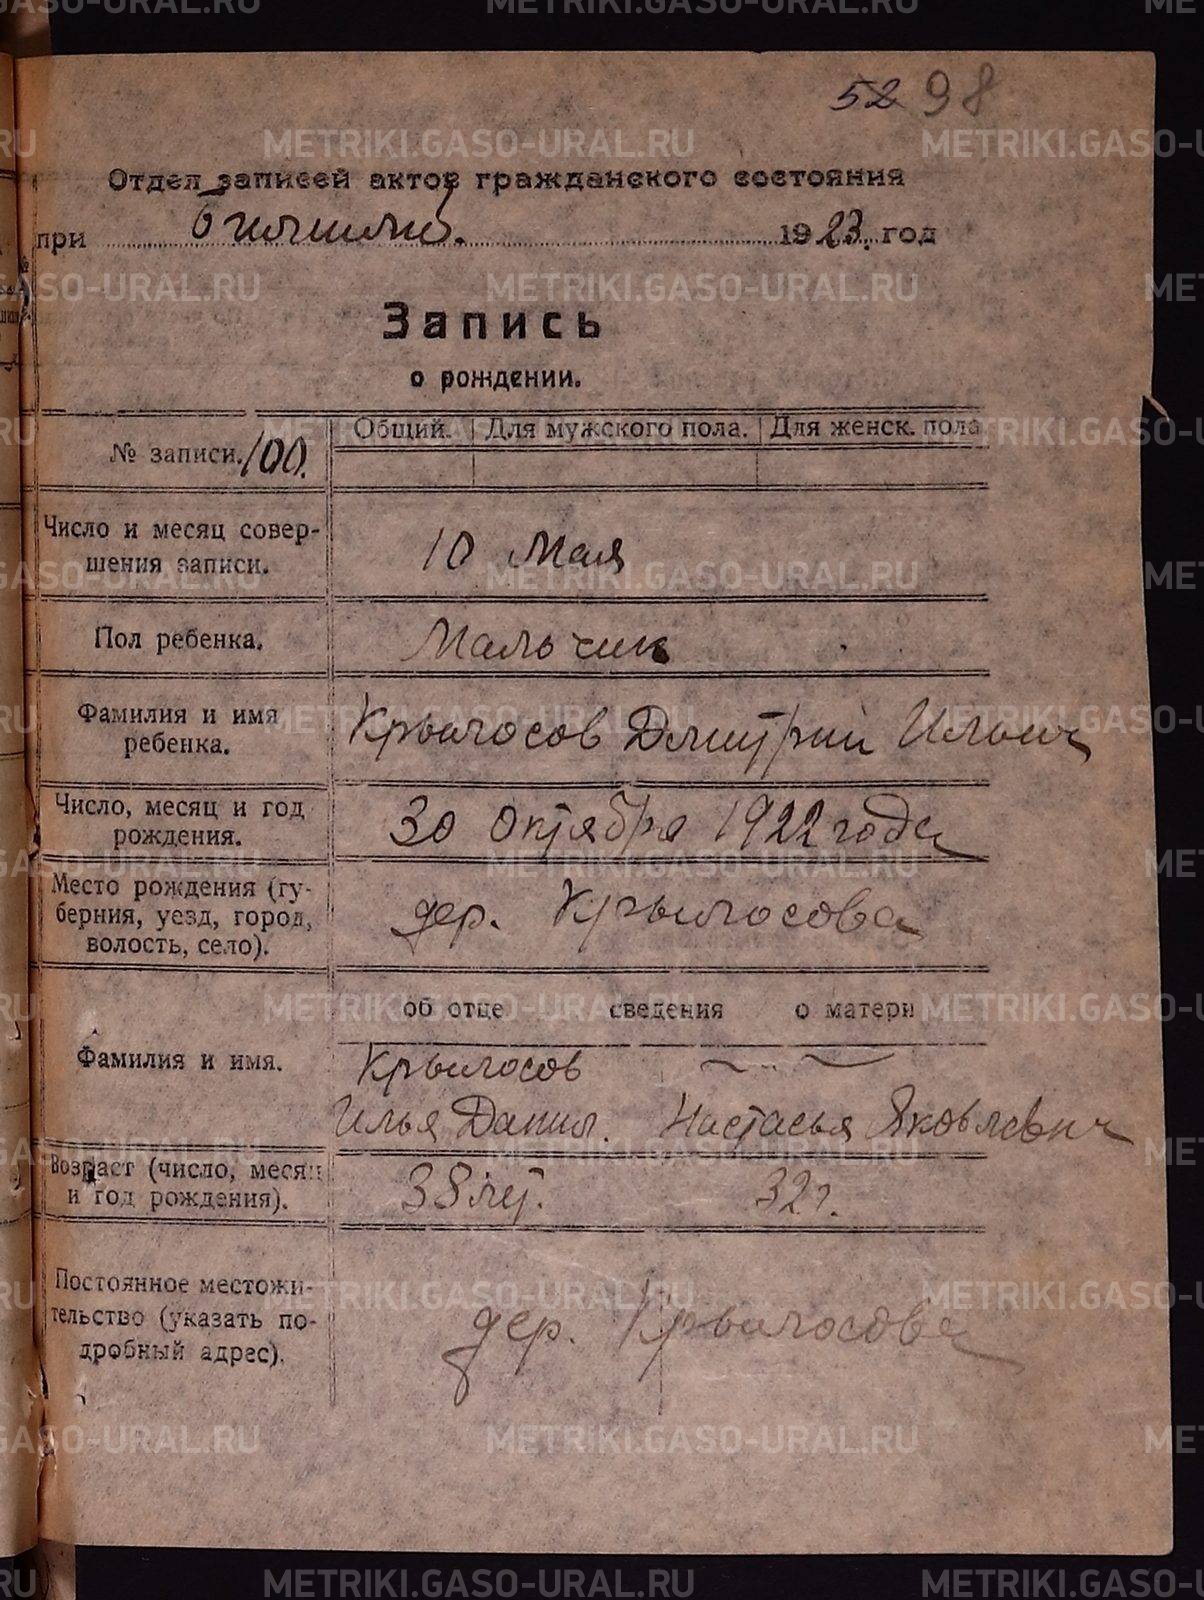 52 98
Отдел записей актов гражданского состояния
при 1923. год
Запись
о рождении.
№ записи. 100. Общий. Для мужского пола. Для женск. пола
Число и месяц совер-
шения записи. 10 Мая
Пол ребенка. Мальчик
Фамилия и имя
ребенка. Крылосов Дмитрий Ильич
Число, месяц и год
рождения. 30 октября 1922 года
Место рождения (гу-
берния, уезд, город,
волость, село). дер. Крылосова
об отце сведения о матери
Фамилия и имя. Крылосов
Илья Данил. Настасья Яковлевич
Возраст (число, месяц
и год рождения). 38 лет. 32 г.
Постоянное местожи-
тельство (указать по-
дробный адрес). дер. Крылосова
METRIKI.GASO-URAL.RU